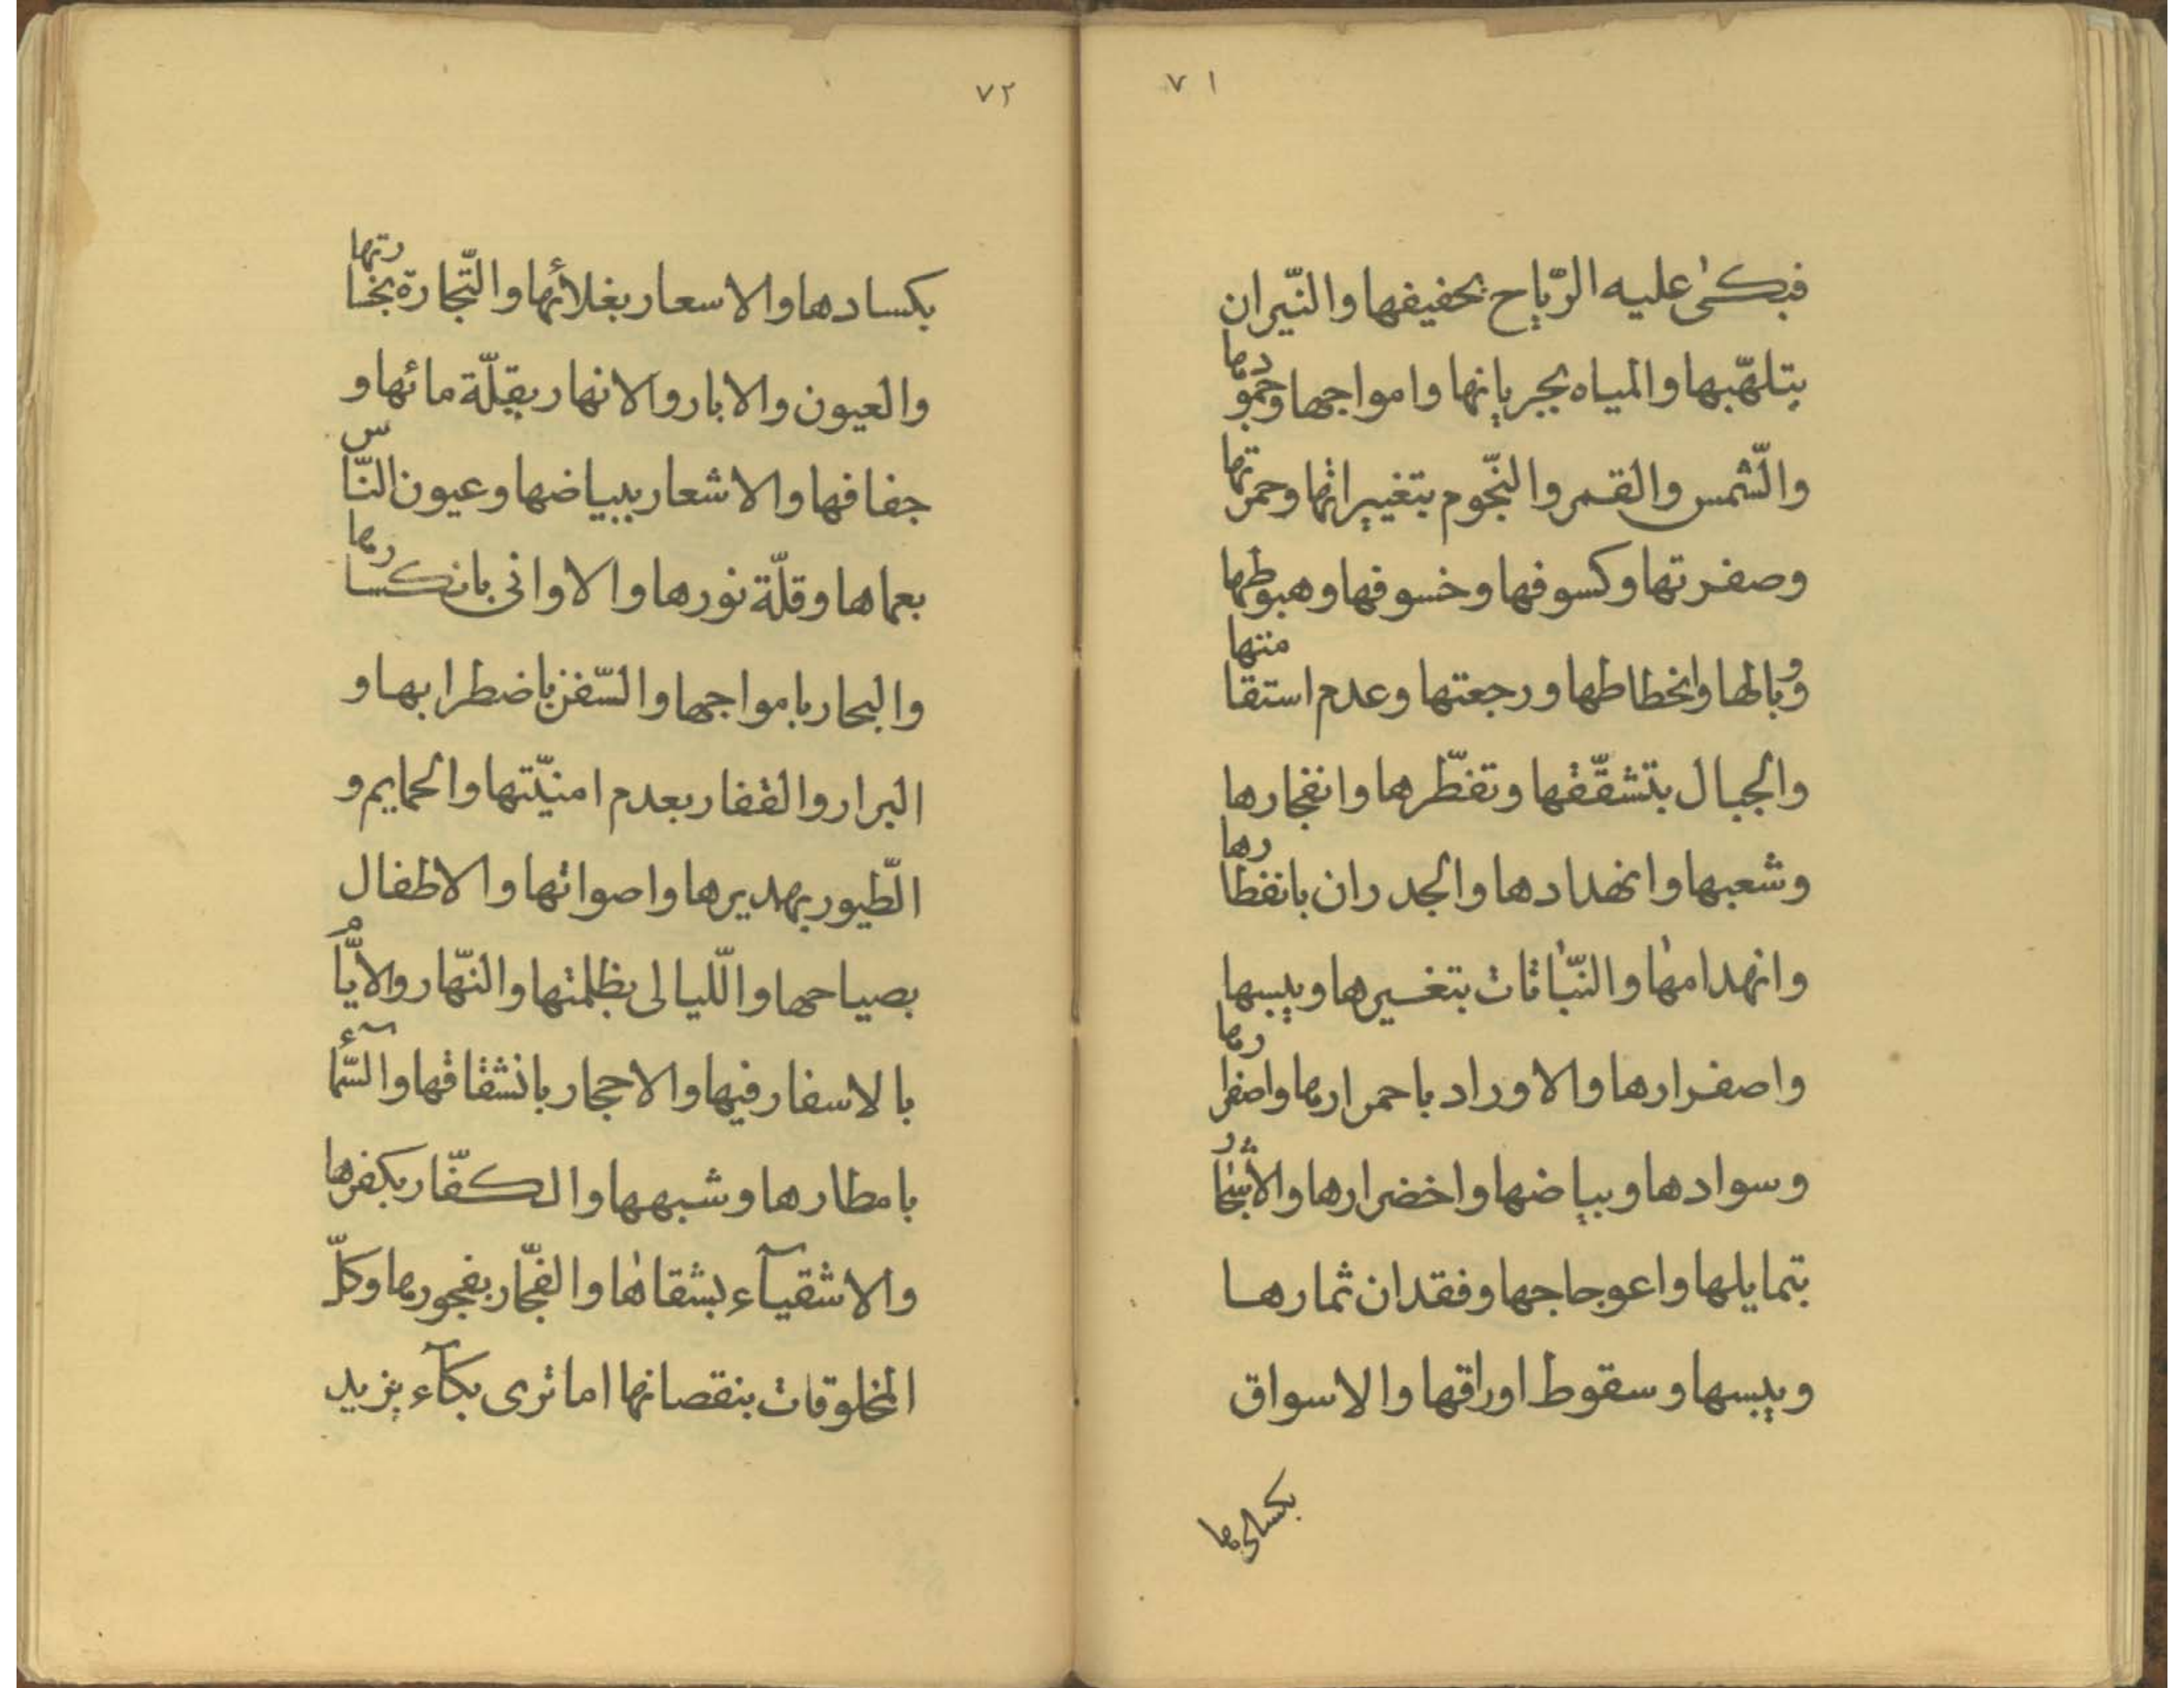 ٧١
فبكىٰ عليه الرّياح بحفيفها والنّيران
بتلهّبها والمياه بجريانها وامواجها وجمودها
والشّمس والقمر والنّجوم بتغييراتها وحمرتها
وصفرتها وكسوفها وخسوفها وهبوطها
ووبالها وانحطاطها ورجعتها وعدم استقامتها
والجبال بتشقّقها وتفطّرها وانفجارها
وشعبها وانهدادها والجدران بانفطارها
وانهدامها والنّباتات بتغييرها ويبسها
واصفرارها والاوراد باحمرارها واصفرارها
وسوادها وبياضها واخضرارها والأشجار
بتمايلها واعوجاجها وفقدان ثمارها
ويبسها وسقوط اوراقها والاسواق
بكسادها
٧٢
بكسادها والاسعار بغلائها والتّجارة بخسارتها
والعيون والابار والانهار بقلّة مائها و
جفافها والاشعار ببياضها وعيون النّاس
بعماها وقلّة نورها والاوانى بانكسارها
والبحار بامواجها والسّفن باضطرابها و
البرار والقفار بعدم امنيّتها والحمايم و
الطّيور بهديرها واصواتها والاطفال
بصياحها واللّيالى بظلمتها والنّهار والأيّام
بالاسفار فيها والاحجار بانشقاقها والسّمآء
بامطارها وشبهها والكفّار بكفرها
والاشقيآء بشقاها والفجّار بفجورها وكلّ
المخلوقات بنقصانها اما ترى بكآء يزيد